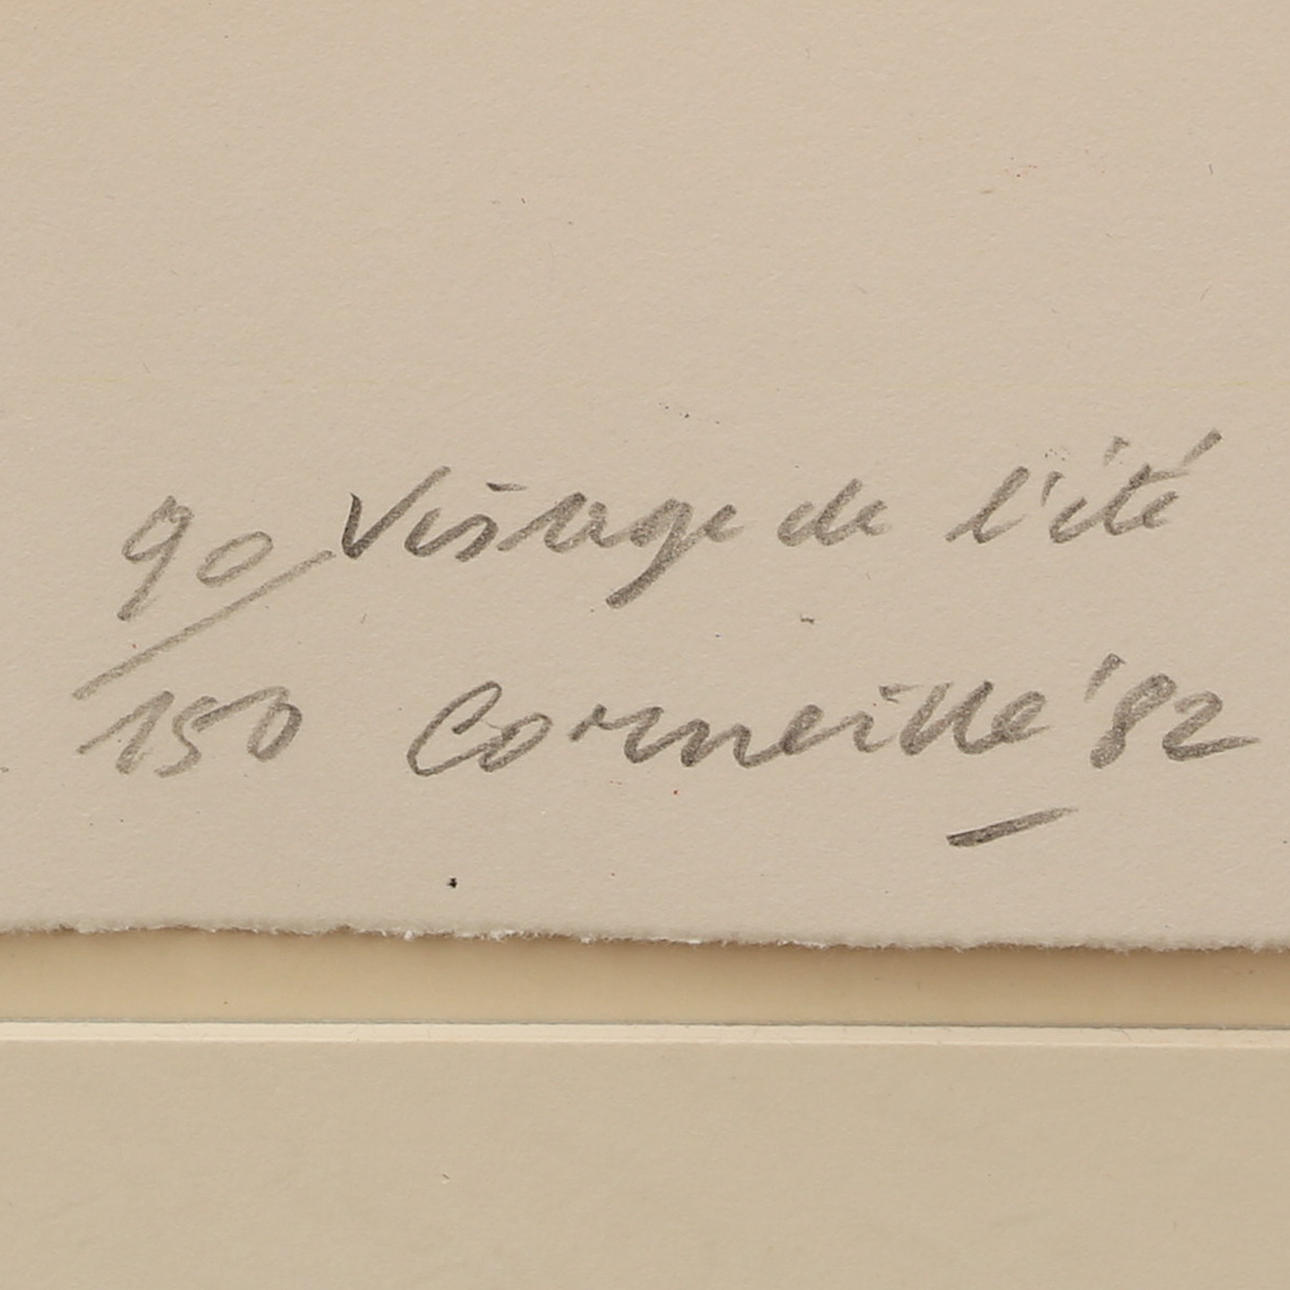 90/150 Visage de l'été
Corneille '82